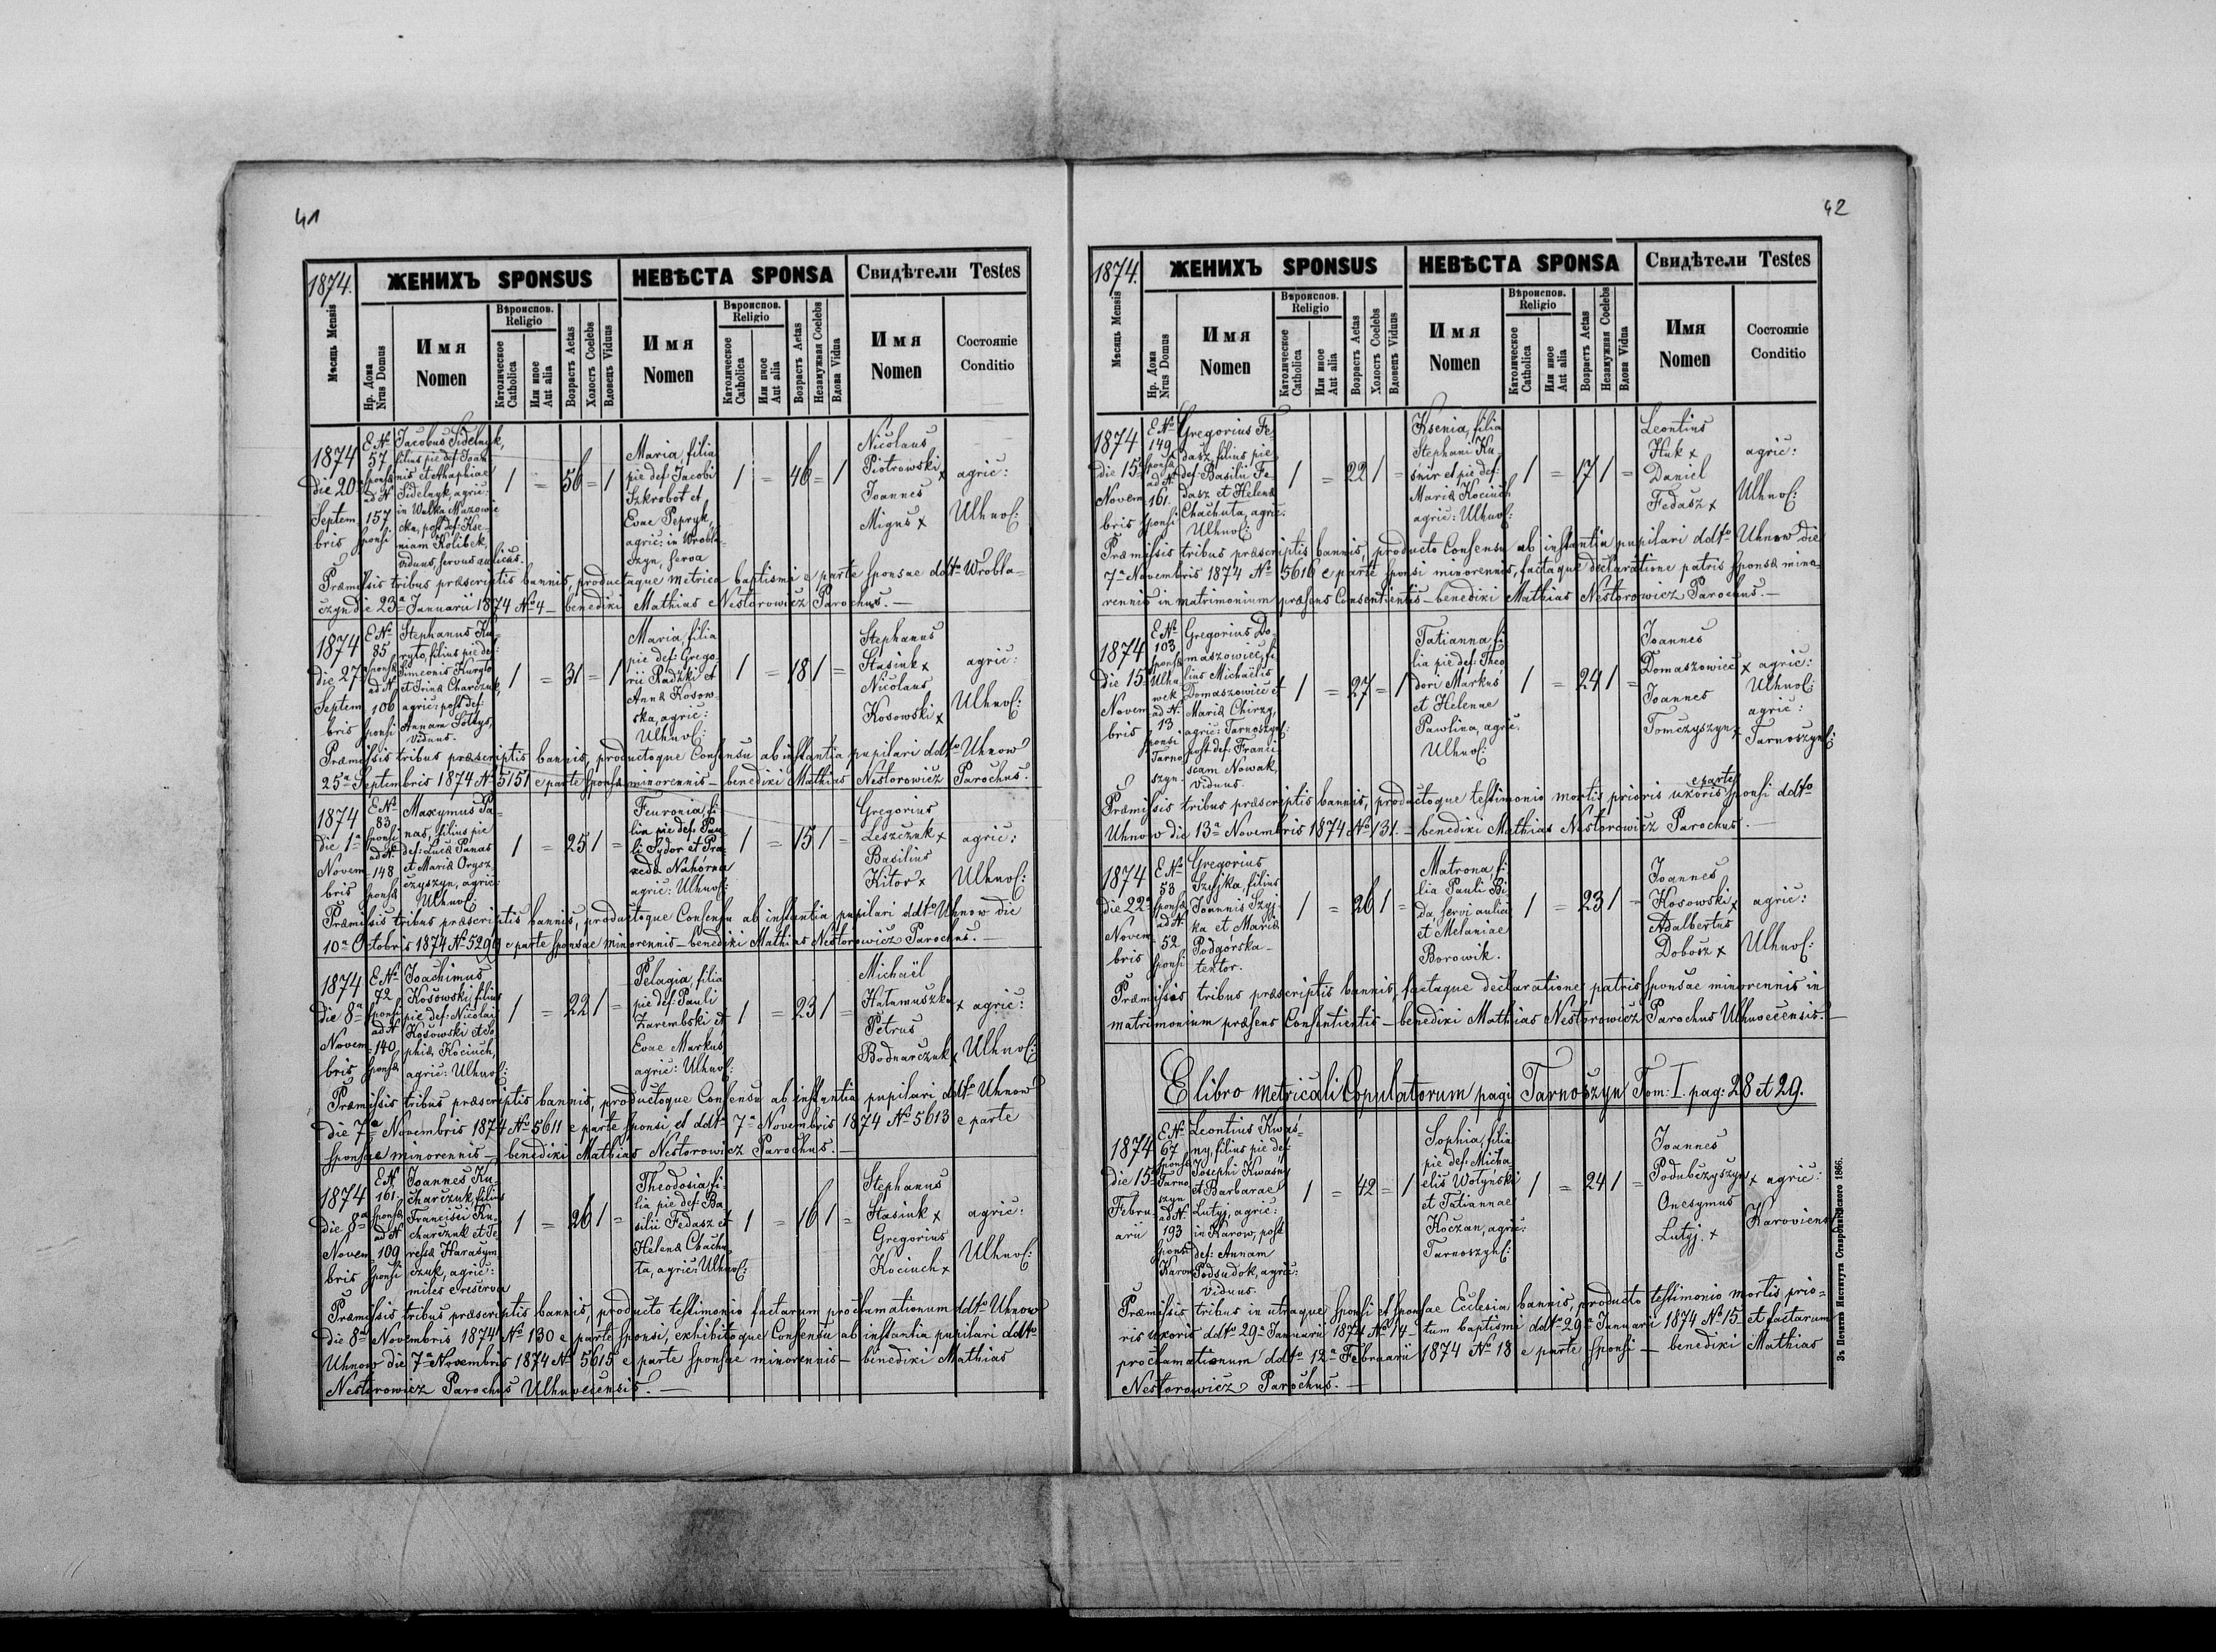 41
1874.
ЖЕНИХЪ SPONSUS
НЕВѢСТА SPONSA
Свидѣтели Testes
Мѣсяць Mensis
Нр. Дома
Nrus Domus
Имя
Nomen
Вѣроиспов.
Religio
Католическое
Catholica
Или иное
Aut alia
Возрастъ Aetas
Холостъ Coelebs
Вдовецъ Viduus
Имя
Nomen
Вѣроиспов.
Religio
Католическое
Catholica
Или иное
Aut alia
Возрастъ Aetas
Незамужная Coelebs
Вдова Vidua
Имя
Nomen
Состояніе
Conditio
1874
die 20a
Septem
bris
E No
57
sponsæ
ad N
157
sponsi
Jacobus Sidelnyk,
filius pie def: Joan
nis et Ahaphiae
Sidelnyk, agric:
in Wulka Mazowie
cka, post def: Kse-
niam Kolibek,
viduus, servus aulicus.
1 = 56 = 1
Maria, filia
pie def: Jacobi
Szkrobot et
Evae Pepryk,
agric: in Wrobla-
szyn, serva
1 = 46 = 1
Nicolaus
Piotrowski x
Joannes
Migus x
agric:
Uhnov:
Præmissis tribus præscriptis bannis, productaque metrica baptismi e parte sponsae ddto Wrobla-
czyn die 23a Januarii 1874 No 4 - benedixi Mathias Nestorowicz Parochus. —
1874
die 27a
Septem
bris
E No
85
sponsæ
ad N
106
sponsi
Stephanus Ku-
ryto, filius pie def:
Simeonis Kuryto
et Irinæ Charczuk,
agric: post def:
Annam Sottys,
viduus.
1 = 31 = 1
Maria, filia
pie def: Grego
rii Radzki et
Annæ Kosow-
ska, agric:
Uhnov:
1 = 18 1 =
Stephanus
Stasiuk x
Nicolaus
Kosowski x
agric:
Uhnov:
Præmissis tribus præscriptis bannis, productoque Consensu ab instantia pupilari ddto Uhnow
25a Septembris 1874 No 5151 e parte sponsæ minorennis - benedixi Mathias Nestorowicz Parochus.
1874
die 1a
Novem
bris
E No
83
sponsi
ad N
148
sponsæ
Maxymus Pa-
nas, filius pie
def: Lucæ Panas
et Mariæ Orysz
czyszyn, agric:
Uhnov:
1 = 25 1 =
Feuronia, fi
lia pie def: Pau
li Sydor et Pra
xedæ Nahorna
agric: Uhnov:
1 = 15 1 =
Gregorius
Leszczuk x
Basilius
Kitor x
agric:
Uhnov:
Præmissis tribus præscriptis bannis, productoque Consensu ab instantia pupilari ddto Uhnow die
10a Octobris 1874 No 5299 e parte sponsae minorennis - benedixi Mathias Nestorowicz Parochus. —
1874
die 8a
Novem
bris
E No
72
sponsi
ad N
140
sponsæ
Joachimus
Kosowski, filius
pie def: Nicolai
Kosowski et So
phiæ Kociuch,
agric: Uhnov:
1 = 22 1 =
Pelagia, filia
pie def: Pauli
Zarembski et
Evae Markus
agric: Uhnov:
1 = 23 1 =
Michaël
Hatamuszka x
Petrus
Bodnarczuk x
agric:
Uhnov:
Præmissis tribus præscriptis bannis, productoque Consensu ab instantia pupilari ddto Uhnow
die 7a Novembris 1874 No 5611 e parte sponsi et ddto 7a Novembris 1874 No 5613 e parte
sponsae minorennis - benedixi Mathias Nestorowicz Parochus. —
1874
die 8a
Novem
bris
E N
161
sponsæ
ad N
109
sponsi
Joannes Ku-
charczuk, filius
Francisci Ku-
charczuk et Te
resiæ Harasym
czuk, agric:
miles e reserva
1 = 26 1 =
Theodosia, fi-
lia pie def: Ba
silii Fedasz et
Helenæ Chachu
ta, agric: Uhnov:
1 = 16 1 =
Stephanus
Stasiuk x
Gregorius
Kociuch x
agric:
Uhnov:
Præmissis tribus præscriptis bannis, producto testimonio factarum proclamationum ddto Uhnow
die 8a Novembris 1874 No 130 e parte sponsi, exhibitoque Consensu ab instantia pupilari ddto
Uhnow die 7a Novembris 1874 No 5615 e parte sponsae minorennis - benedixi Mathias
Nestorowicz Parochus Uhnovecensis. —
42
1874.
ЖЕНИХЪ SPONSUS
НЕВѢСТА SPONSA
Свидѣтели Testes
Мѣсяць Mensis
Нр. Дома
Nrus Domus
Имя
Nomen
Вѣроиспов.
Religio
Католическое
Catholica
Или иное
Aut alia
Возрастъ Aetas
Холостъ Coelebs
Вдовецъ Viduus
Имя
Nomen
Вѣроиспов.
Religio
Католическое
Catholica
Или иное
Aut alia
Возрастъ Aetas
Незамужная Coelebs
Вдова Vidua
Имя
Nomen
Состояніе
Conditio
1874
die 15a
Novem
bris
E No
149
sponsæ
ad N
161.
sponsi
Gregorius Fe-
dasz, filius pie
def: Basilii Fe-
dasz et Helenæ
Chachuta, agric:
Uhnov:
1 = 22 1 =
Ksenia, filia
Stephani Ku-
śnir et pie def:
Mariæ Kociuch
agric: Uhnov:
1 = 17 1 =
Leontius
Huk x
Daniel
Fedasz x
agric:
Uhnov:
Præmissis tribus præscriptis bannis, producto Consensu ab instantia pupilari ddto Uhnow die
7a Novembris 1874 No 5616 e parte sponsi minorennis, factaque declaratione patris sponsæ mino-
rennis in matrimonium præsens Consentientis - benedixi Mathias Nestorowicz Parochus. —
1874
die 15a
Novem
bris
E No
103
sponsæ
Uhno
wek
ad N
13
sponsi
Tarno
szyn
Gregorius Do-
maszowiec, fi
lius Michaëlis
Domaszowiec et
Mariæ Chirzy,
agric: Tarnoszyn:
post def: Franci
scam Nowak,
viduus.
1 = 27 = 1
Tatianna, fi
lia pie def: Theo
dori Markus
et Helenae
Pawlina, agric:
Uhnov:
1 = 24 1 =
Joannes
Domaszowiec x
Joannes
Tomczyszyn x
agric:
Uhnov:
agric:
Tarnoszyn:
Præmissis tribus præscriptis bannis, productoque testimonio mortis prioris uxoris e parte sponsi ddto
Uhnow die 13a Novembris 1874 No 131. - benedixi Mathias Nestorowicz Parochus. —
1874
die 22a
Novem
bris
E No
53
sponsæ
ad N
52
sponsi
Gregorius
Szyjka, filius
Joannis Szyj
ka et Mariæ
Podgorska -
textor.
1 = 26 1 =
Matrona, fi
lia Pauli Bi
da, servi aulici
et Melaniae
Borowik.
1 = 23 1 =
Joannes
Kosowski x
Adalbertus
Dobosz x
agric:
Uhnov:
Præmissis tribus præscriptis bannis, factaque declaratione patris sponsae minorennis in
matrimonium præsens Consentientis - benedixi Mathias Nestorowicz Parochus Uhnovecensis. —
E libro metricali Copulatorum pagi Tarnoszyn Tom: I. pag: 28 et 29.
1874
die 15a
Febru
arii
E No
67
sponsæ
Tarno
szyn
ad N
193
sponsi
Karow
Leontius Kwaś-
ny, filius pie def:
Josephi Kwasny
et Barbarae
Lutyj, agric:
in Karow, post
def: Annam
Podsudok, agric:
viduus.
1 = 42 = 1
Sophia, filia
pie def: Micha
elis Wołyński
et Tatiannae
Koczan, agric:
Tarnoszyn:
1 = 24 1 =
Joannes
Podubczyszyn x
Onesymus
Lutyj. x
agric:
Karoviens:
Præmissis tribus in utraque sponsi et sponsae Ecclesia bannis, producto testimonio mortis prio-
ris uxoris ddto 29a Januarii 1874 No 14 - tum baptismi ddto 29a Januarii 1874 No 15 et factarum
proclamationum ddto 12a Februarii 1874 No 18 e parte sponsi - benedixi Mathias
Nestorowicz Parochus. —
Зъ Печатнѣ Института Ставропигійского 1866.